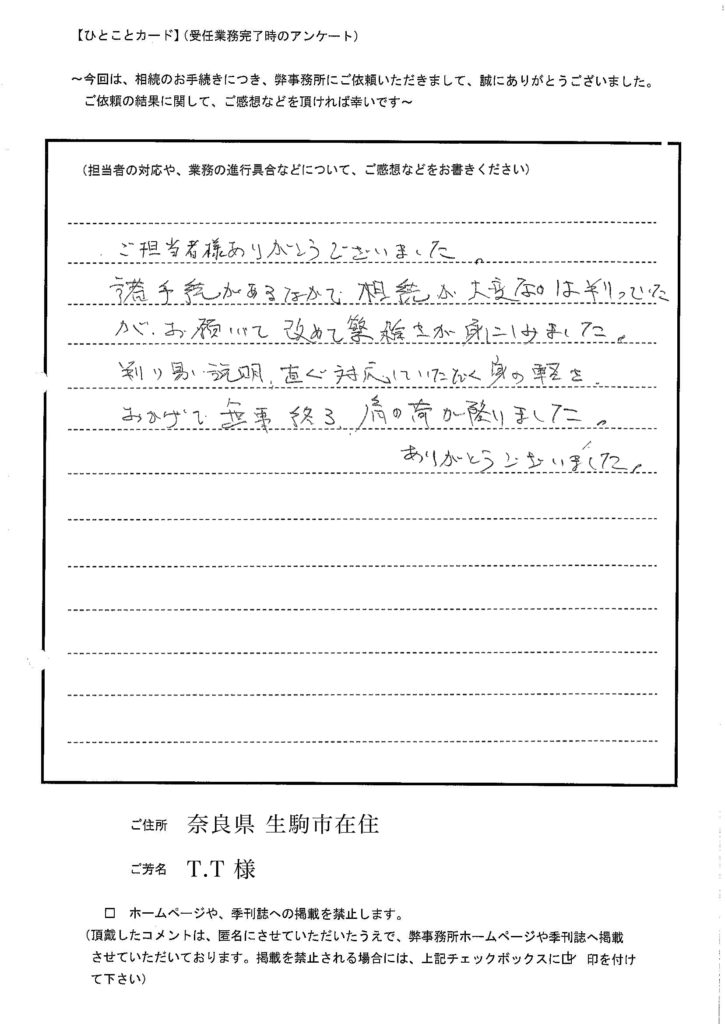 【ひとことカード】(受任業務完了時のアンケート)
～今回は、相続のお手続きにつき、弊事務所にご依頼いただきまして、誠にありがとうございました。
ご依頼の結果に関して、ご感想などを頂ければ幸いです～
(担当者の対応や、業務の進行具合などについて、ご感想などをお書きください)
ご担当者様ありがとうございました。
諸手続があるなかで、相続が大変なのは判っていた
が、お願いして改めて繁雑さが身にしみました。
判り易い説明、直ぐ対応していただく身の軽さ、
おかげで無事終る、肩の荷が降りました。
ありがとうございました。
ご住所 奈良県 生駒市在住
ご芳名 T.T 様
□ ホームページや、季刊誌への掲載を禁止します。
(頂戴したコメントは、匿名にさせていただいたうえで、弊事務所ホームページや季刊誌へ掲載
させていただいております。掲載を禁止される場合には、上記チェックボックスに☑ 印を付け
て下さい)